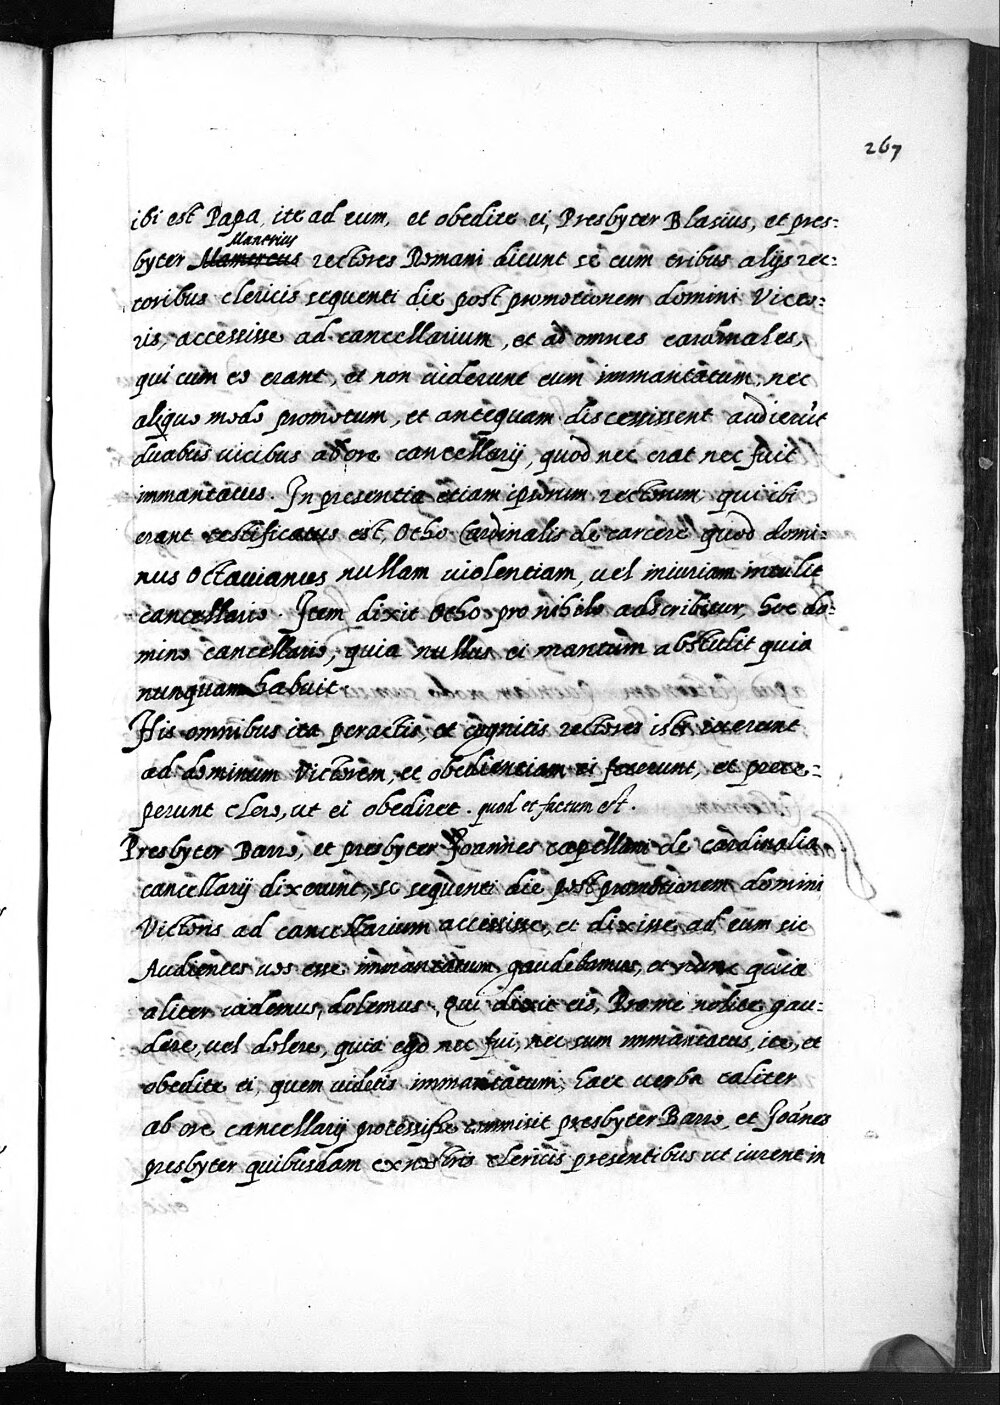 267
ibi est Papa, ite ad eum, et obedite ei, Presbyter Blasius, et pres:
Manerius
byter Mamercus rectores Romani dicunt se cum tribus alijs rec:
toribus clericis sequenti die post promotionem domini Victo:
ris, accessisse ad cancellarium, et ad omnes cardinales,
qui cum eo erant, et non viderunt eum immantatum, nec
aliquo modo promotum, et antequam discessissent audierūt
duabus vicibus ab ore cancellarij, quod nec erat nec fuit
immantatus. In presentia etiam ipsorum rectorum, qui ibi
erant testificatus est, Otho Cardinalis de carcere quod domi:
nus Octavianus nullam violentiam, vel iniuriam intulit
cancellario. Item dixit Otho pro nihilo adscribitur, hoc do:
mino cancellario, quia nullus ei mantum abstulit quia
nunquam habuit.
His omnibus ita peractis, et cognitis rectores isti iverunt
ad dominum Victorem, et obedientiam ei fecerunt, et prece:
perunt clero, ut ei obediret. quod et factum est.
Presbyter Barro, et presbyter Joannes capellani de cardinalia
cancellarij dixerunt, se sequenti die post promotionem domini
Victoris ad cancellarium accessisse, et dixisse ad eum sic
Audientes vos esse immantatum gaudebamus, et nunc quia
aliter videmus, dolemus. Qui dixit eis, De me nolite gau-
dere, vel dolere, quia ego nec fui, nec sum immantatus, ite, et
obedite ei, quem videtis immantatum, haec verba taliter
ab ore cancellarij processisse commisit presbyter Barro, et Joānes
presbyter quibusdam ex nostris clericis presentibus ut iurent in